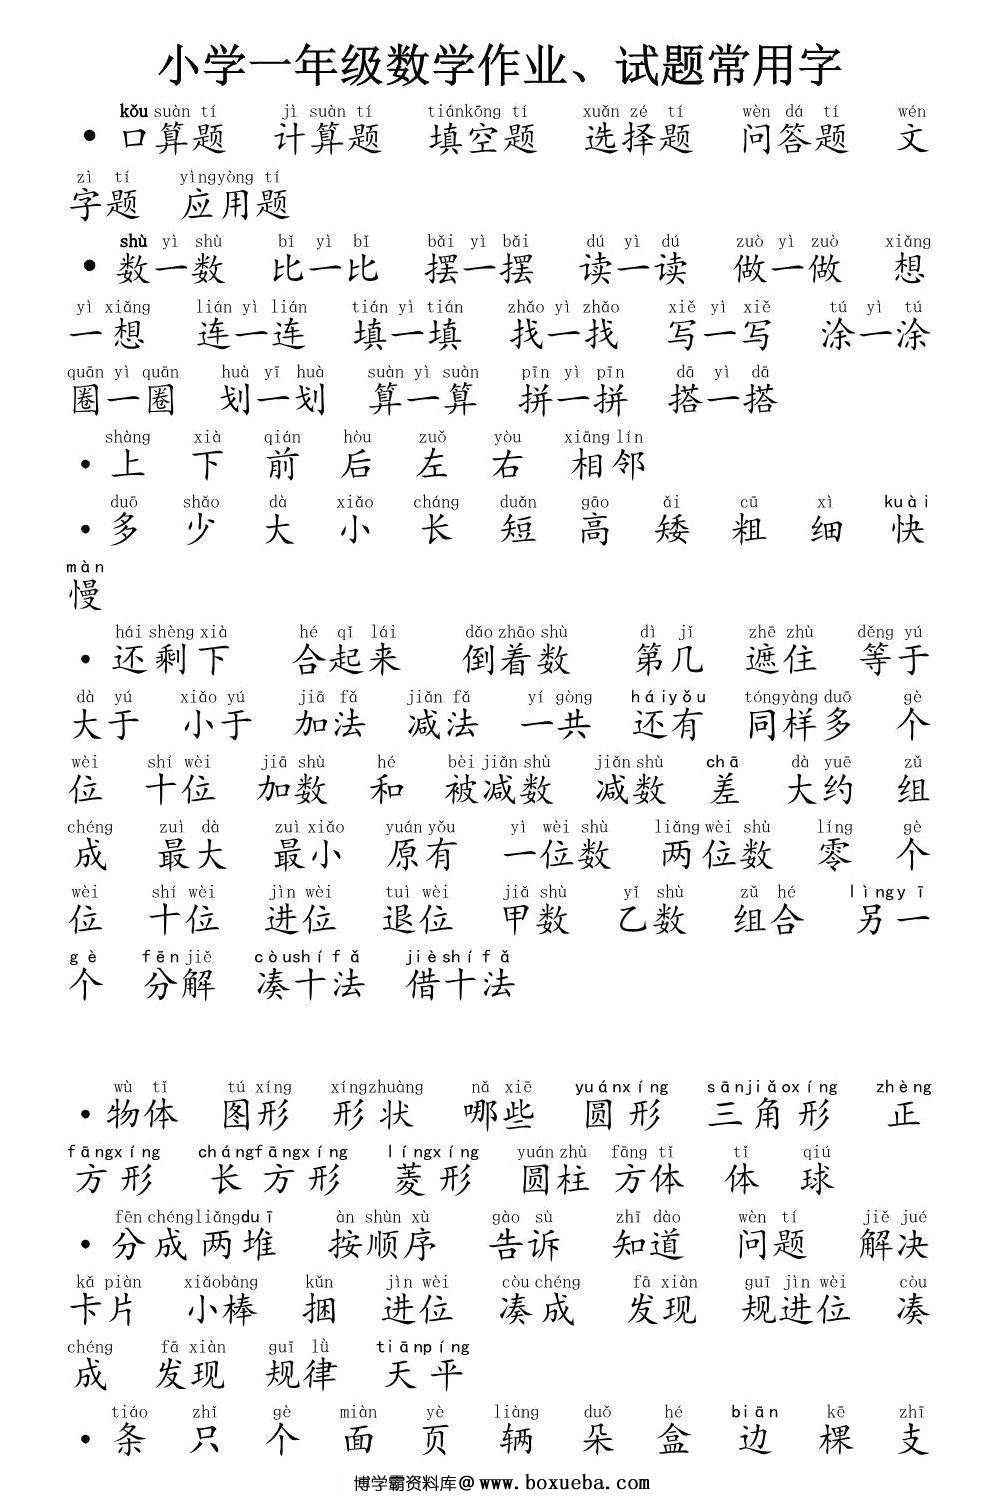 小学一年级数学作业、试题常用字
kǒu suàn tí jì suàn tí tiánkōng tí xuǎn zé tí wèn dá tí wén
• 口算题 计算题 填空题 选择题 问答题 文
zì tí yìngyòng tí
字题 应用题
shù yì shù bǐ yì bǐ bǎi yì bǎi dú yì dú zuò yì zuò xiǎng
• 数一数 比一比 摆一摆 读一读 做一做 想
yì xiǎng lián yì lián tián yì tián zhǎo yì zhǎo xiě yì xiě tú yì tú
一想 连一连 填一填 找一找 写一写 涂一涂
quān yì quān huà yī huà suàn yì suàn pīn yì pīn dā yì dā
圈一圈 划一划 算一算 拼一拼 搭一搭
shàng xià qián hòu zuǒ yòu xiāng lín
• 上 下 前 后 左 右 相邻
duō shǎo dà xiǎo cháng duǎn gāo ǎi cū xì kuài
• 多 少 大 小 长 短 高 矮 粗 细 快
màn
慢
hái shèng xià hé qǐ lái dǎo zhāo shù dì jǐ zhē zhù děng yú
• 还剩下 合起来 倒着数 第几 遮住 等于
dà yú xiǎo yú jiā fǎ jiǎn fǎ yí gòng háiyǒu tóngyàng duō gè
大于 小于 加法 减法 一共 还有 同样多 个
wèi shí wèi jiā shù hé bèi jiǎn shù jiǎn shù chā dà yuē zǔ
位 十位 加数 和 被减数 减数 差 大约 组
chéng zuì dà zuì xiǎo yuán yǒu yì wèi shù liǎng wèi shù líng gè
成 最大 最小 原有 一位数 两位数 零 个
wèi shí wèi jìn wèi tuì wèi jiǎ shù yǐ shù zǔ hé lìngyī
位 十位 进位 退位 甲数 乙数 组合 另一
gè fēn jiě còushífǎ jièshífǎ
个 分解 凑十法 借十法
wù tǐ tú xíng xíngzhuàng nǎ xiē yuánxíng sānjiǎoxíng zhèng
• 物体 图形 形状 哪些 圆形 三角形 正
fāngxíng chángfāngxíng língxíng yuán zhù fāng tǐ tǐ qiú
方形 长方形 菱形 圆柱 方体 体 球
fēn chéngliǎngduī àn shùn xù gào sù zhī dào wèn tí jiě jué
• 分成两堆 按顺序 告诉 知道 问题 解决
kǎ piàn xiǎobàng kǔn jìn wèi còu chéng fā xiàn guī jìn wèi còu
卡片 小棒 捆 进位 凑成 发现 规进位 凑
chéng fā xiàn guī lǜ tiānpíng
成 发现 规律 天平
tiáo zhǐ gè miàn yè liàng duǒ hé biān kē zhī
• 条 只 个 面 页 辆 朵 盒 边 棵 支
博学霸资料库@ www.boxueba.com